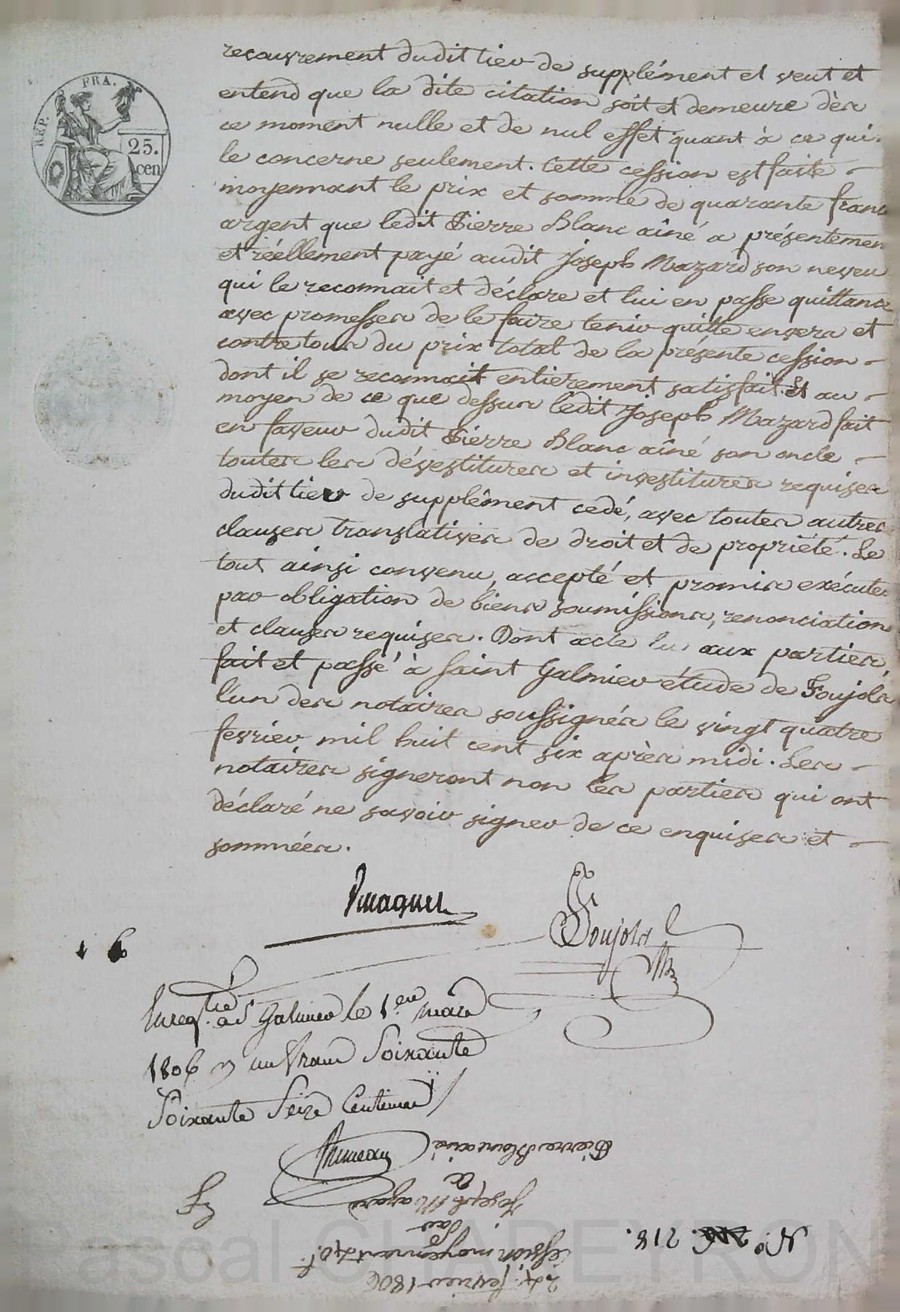 REP. FRA.
25.
cen
recouvrement dudit lieu de supplément et veut et
entend que la dite citation soit et demeure dès
ce moment nulle et de nul effet quant à ce qui
le concerne seulement. Cette cession est faite
moyennant le prix et somme de quarante franc
argent que ledit Pierre Blanc aîné a présentemen
et réellement payé audit Joseph Mazard son neveu
qui le reconnait et déclare et lui en passe quittance
avec promesses de le faire tenir quitte envers et
contre tous du prix total de la présente cession
dont il se reconnait entièrement satisfait. Et au
moyen de ce que dessus ledit Joseph Mazard fait
en faveur dudit Pierre Blanc aîné son oncle
toutes les dévestitures et investitures requises
dudit lieu de supplément cedé, avec toutes autres
clauses translatives de droit et de propriété. Le
tout ainsi convenu, accepté et promis exécuter
par obligation de biens soumissions, renonciation
et clauses requises. Dont acte lu aux parties,
fait et passé à Saint Galmier étude de Foujols
l'un des notaires soussignés le vingt quatre
fevrier mil huit cent six après midi. Les
notaires signeront non les parties qui ont
déclaré ne savoir signer de ce enquises et
sommées.
Foujols
Enregtré à St Galmier le 1er mars
1806 un franc Soixante
Soixante Seize Centimes
24 fevrier 1806
Cession moyennant 40f.
par
Joseph Mazard
à
Pierre Blanc ainé
No. 218.
Pascal CHAPEYRON